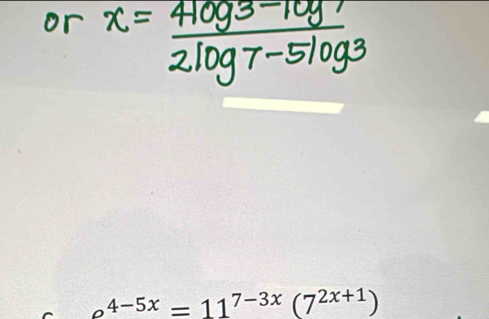 or x = \frac{4log3 - log7}{2log7 - 5log3}
e^{4-5x} = 11^{7-3x} (7^{2x+1})